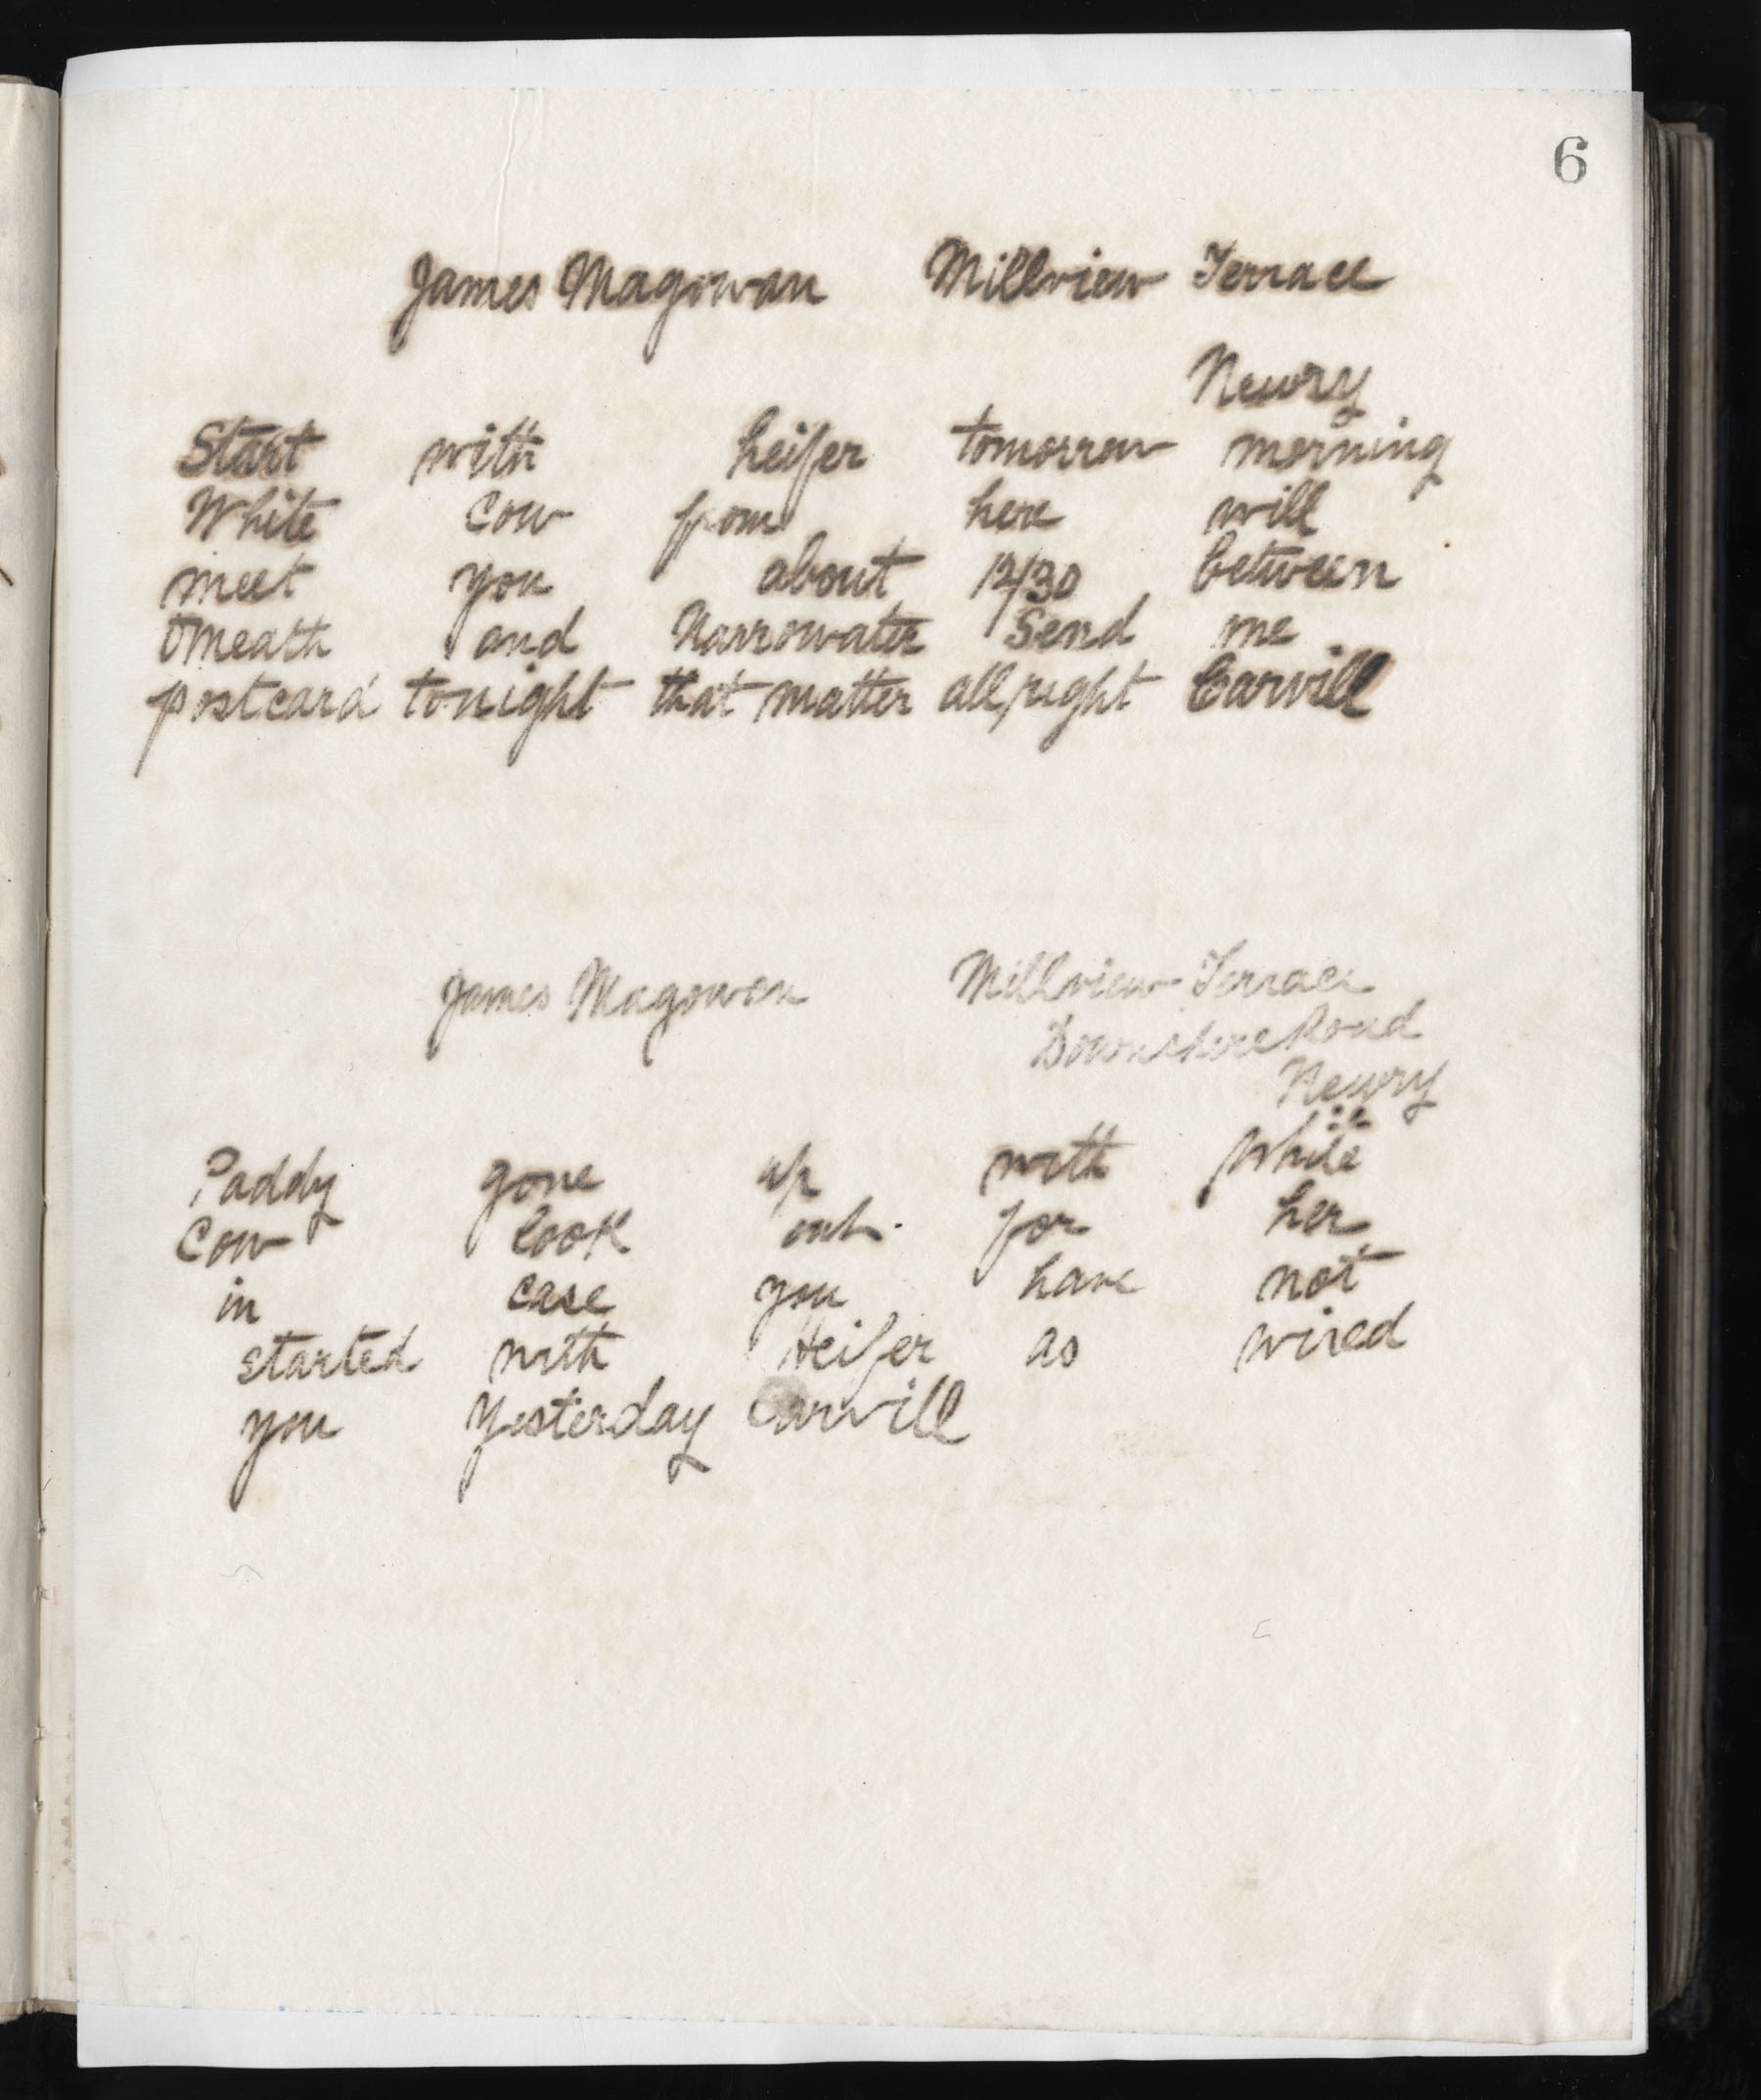 6
James Magowan Millview Terrace
Newry
Start with heifer tomorrow morning
White Cow from here will
meet you about 12/30 between
Omeath and Narrowater Send me
postcard tonight that matter all right Carvill
James Magowan Millview Terrace
Downshire Road
Newry
Paddy gone up with white
Cow look out for her
in case you have not
started with Heifer as wired
you Yesterday Carvill